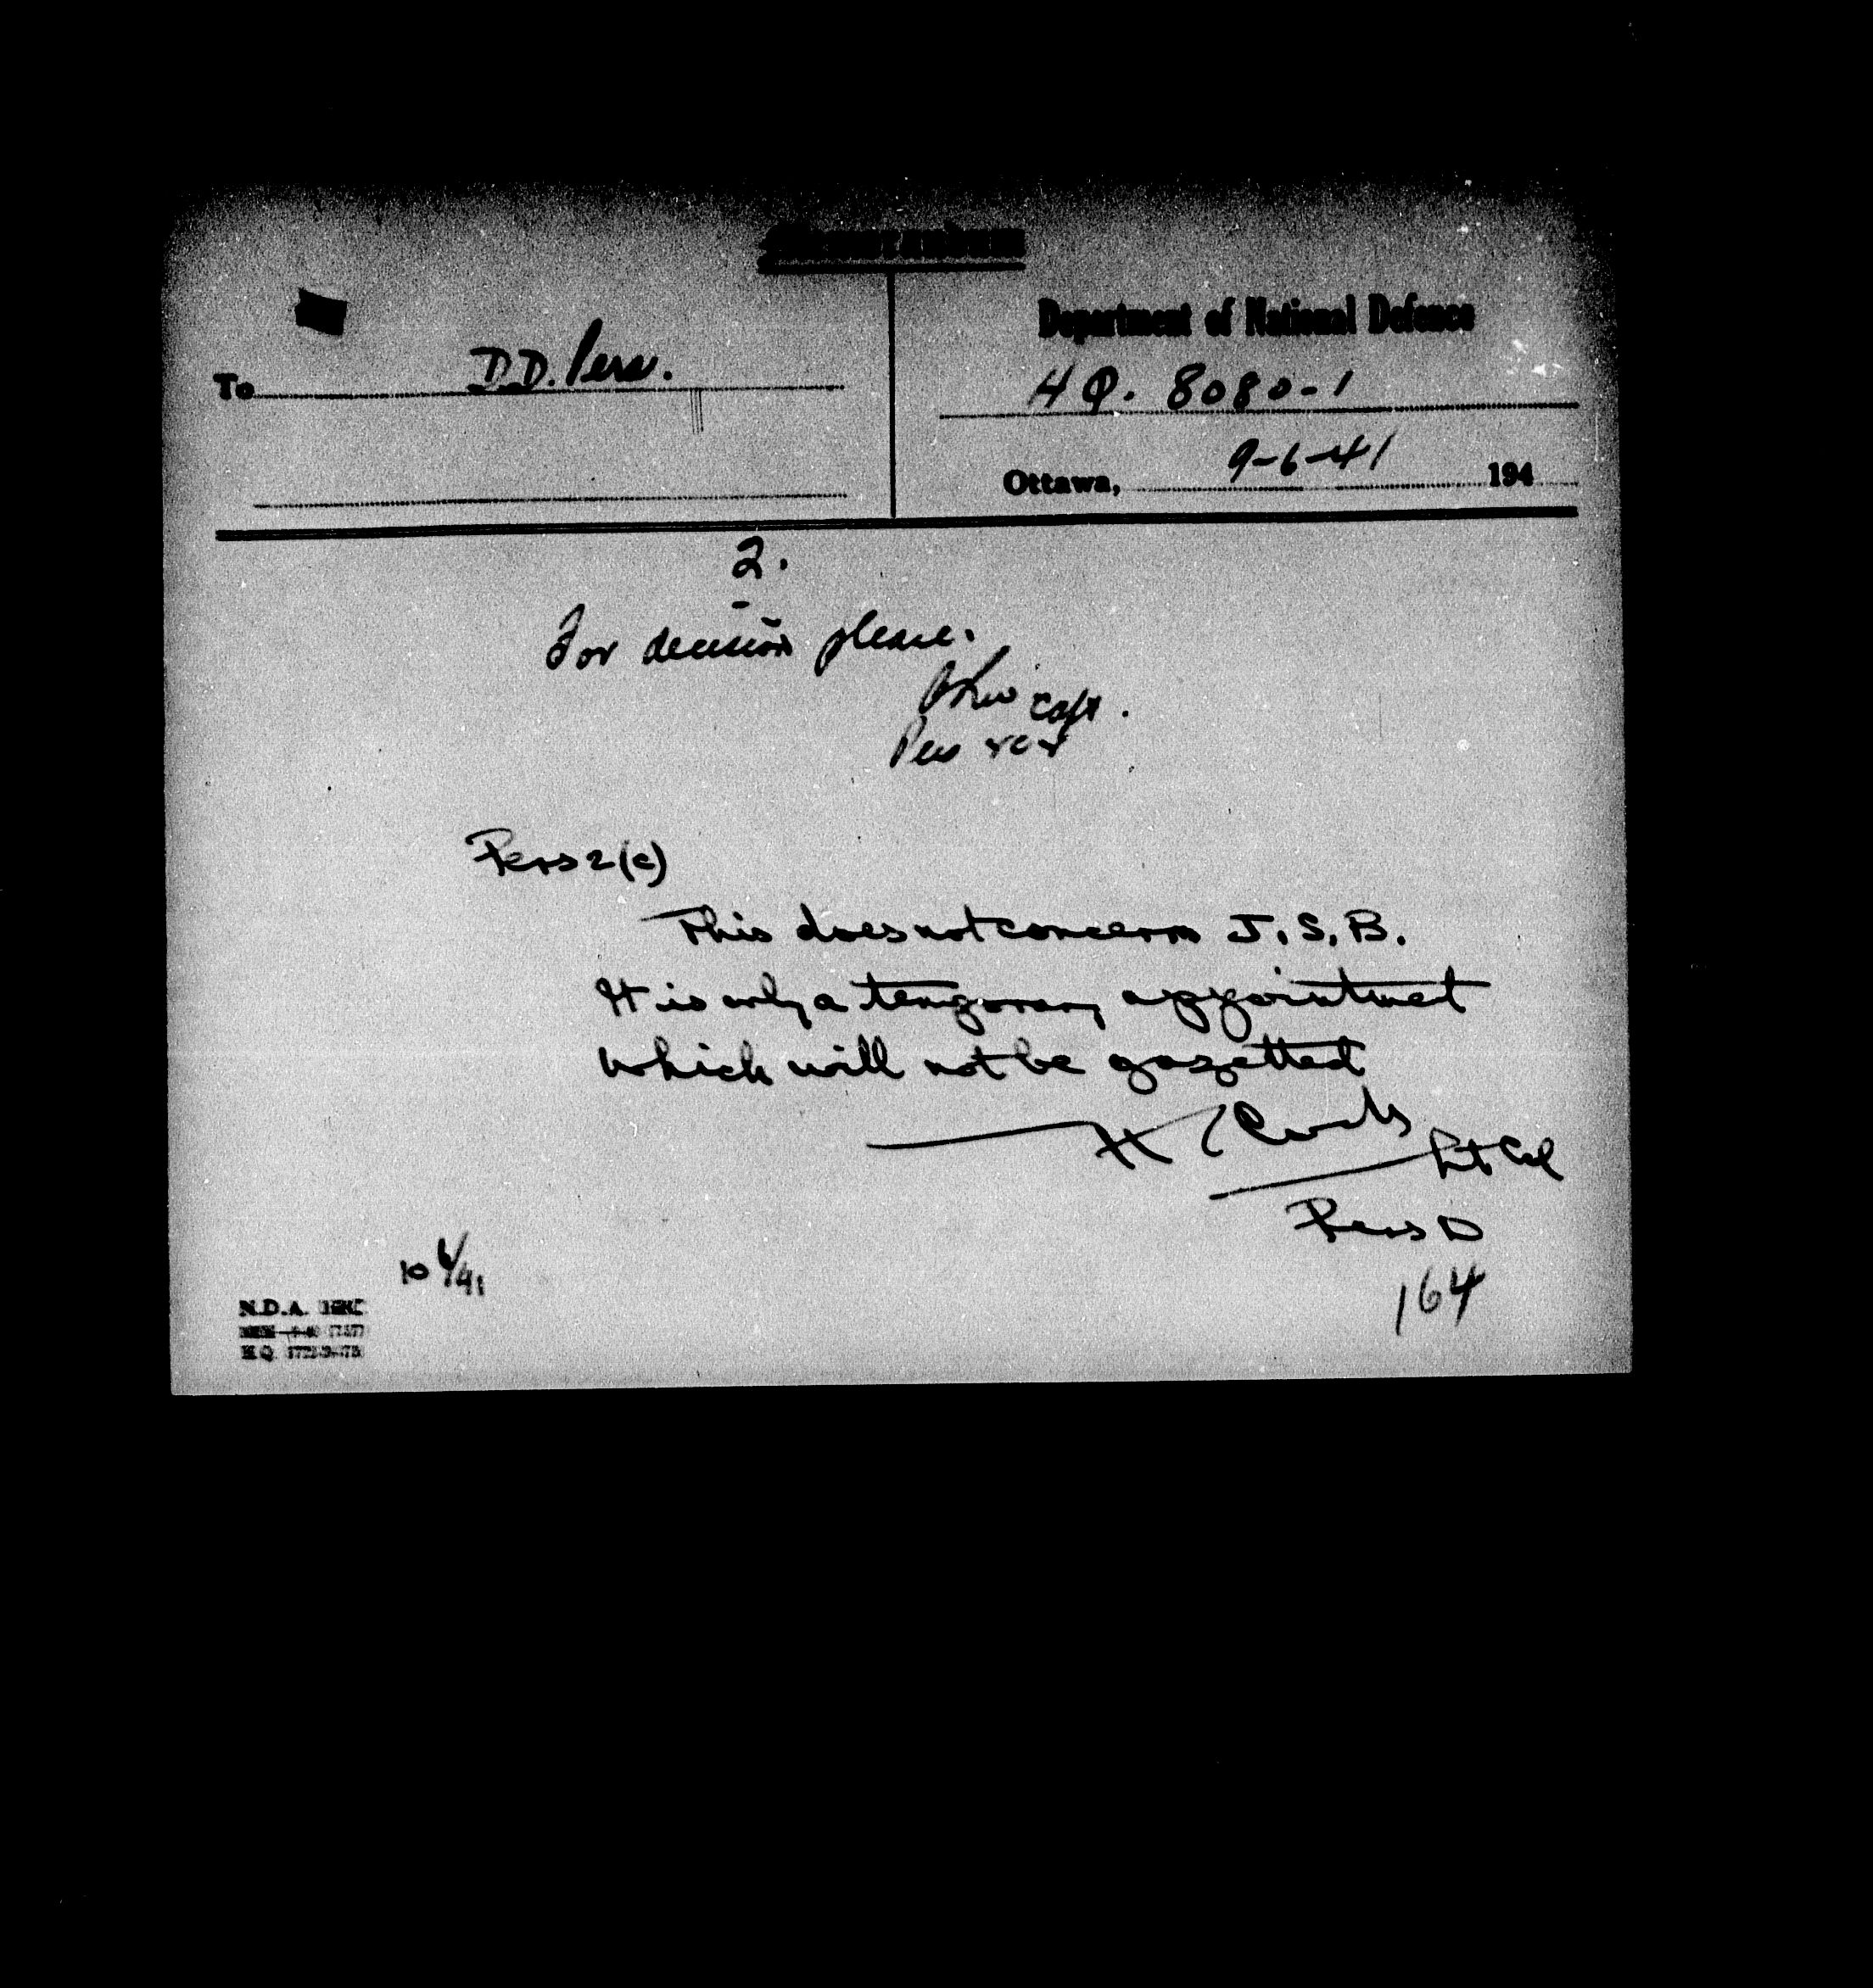 Memorandum
Department of National Defence
To D.D. Pers.
H Q. 8080-1
Ottawa, 9-6-41 194
2.
For decision please.
Capt.
Pers
Pers 2(c)
This does not concern J.S.B.
It is only a temporary appointment
which will not be gazetted
Lt Col
Pers D
10 6/41
164
N.D.A.
H.Q.